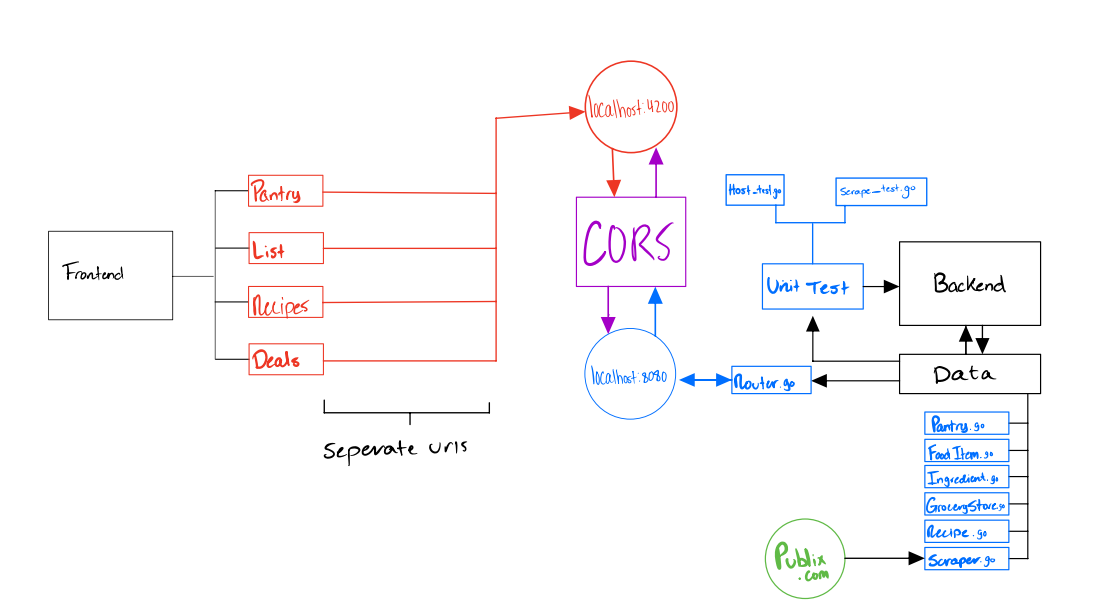 Frontend
Pantry
List
Recipes
Deals
Seperate urls
localhost:4200
CORS
localhost:8080
Host_test.go
Scrape_test.go
Unit Test
Backend
Data
Router.go
Pantry.go
Food Item.go
Ingredient.go
GroceryStore.go
Recipe.go
Scraper.go
Publix
.com